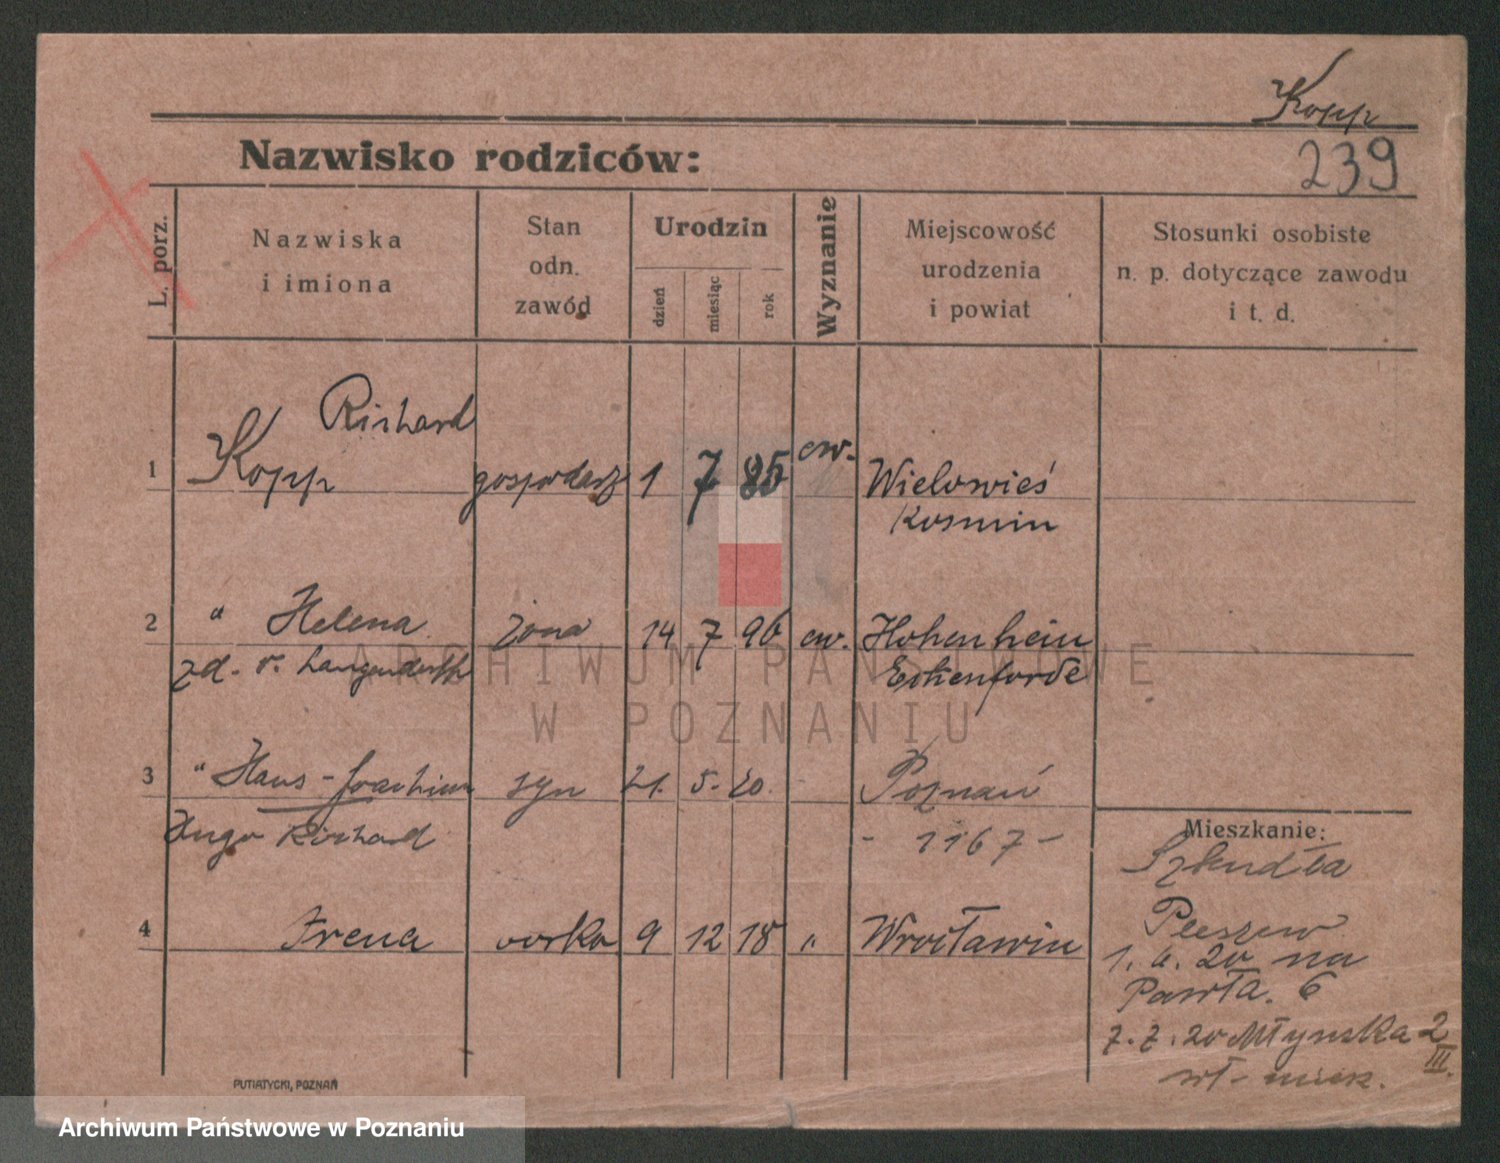 Kopp
Nazwisko rodziców:
239
L. porz.
Nazwiska
i imiona
Stan
odn.
zawód
Urodzin
dzień
miesiąc
rok
Wyznanie
Miejscowość
urodzenia
i powiat
Stosunki osobiste
n. p. dotyczące zawodu
i t. d.
Richard
1 Kopp gospodarz 1 7 85 ew. Wielowieś
Kosmin
2 " Helena żona 14 7 96 ew. Hohenhein
zd. v. Langendorff Eckenforde
3 " Hans-Joachim syn 21. 5. 20. Poznań
Hugo Richard - 1167 -
4 Irena corka 9 12 18 " Wrocławin
Mieszkanie:
Szkudła
Pleszew
1. 6. 20 na
Pawła. 6
7. 7. 20 Młynska 2
III.
wł - miesz.
PUTIATYCKI, POZNAŃ
ARCHIWUM PAŃSTWOWE
W POZNANIU
Archiwum Państwowe w Poznaniu